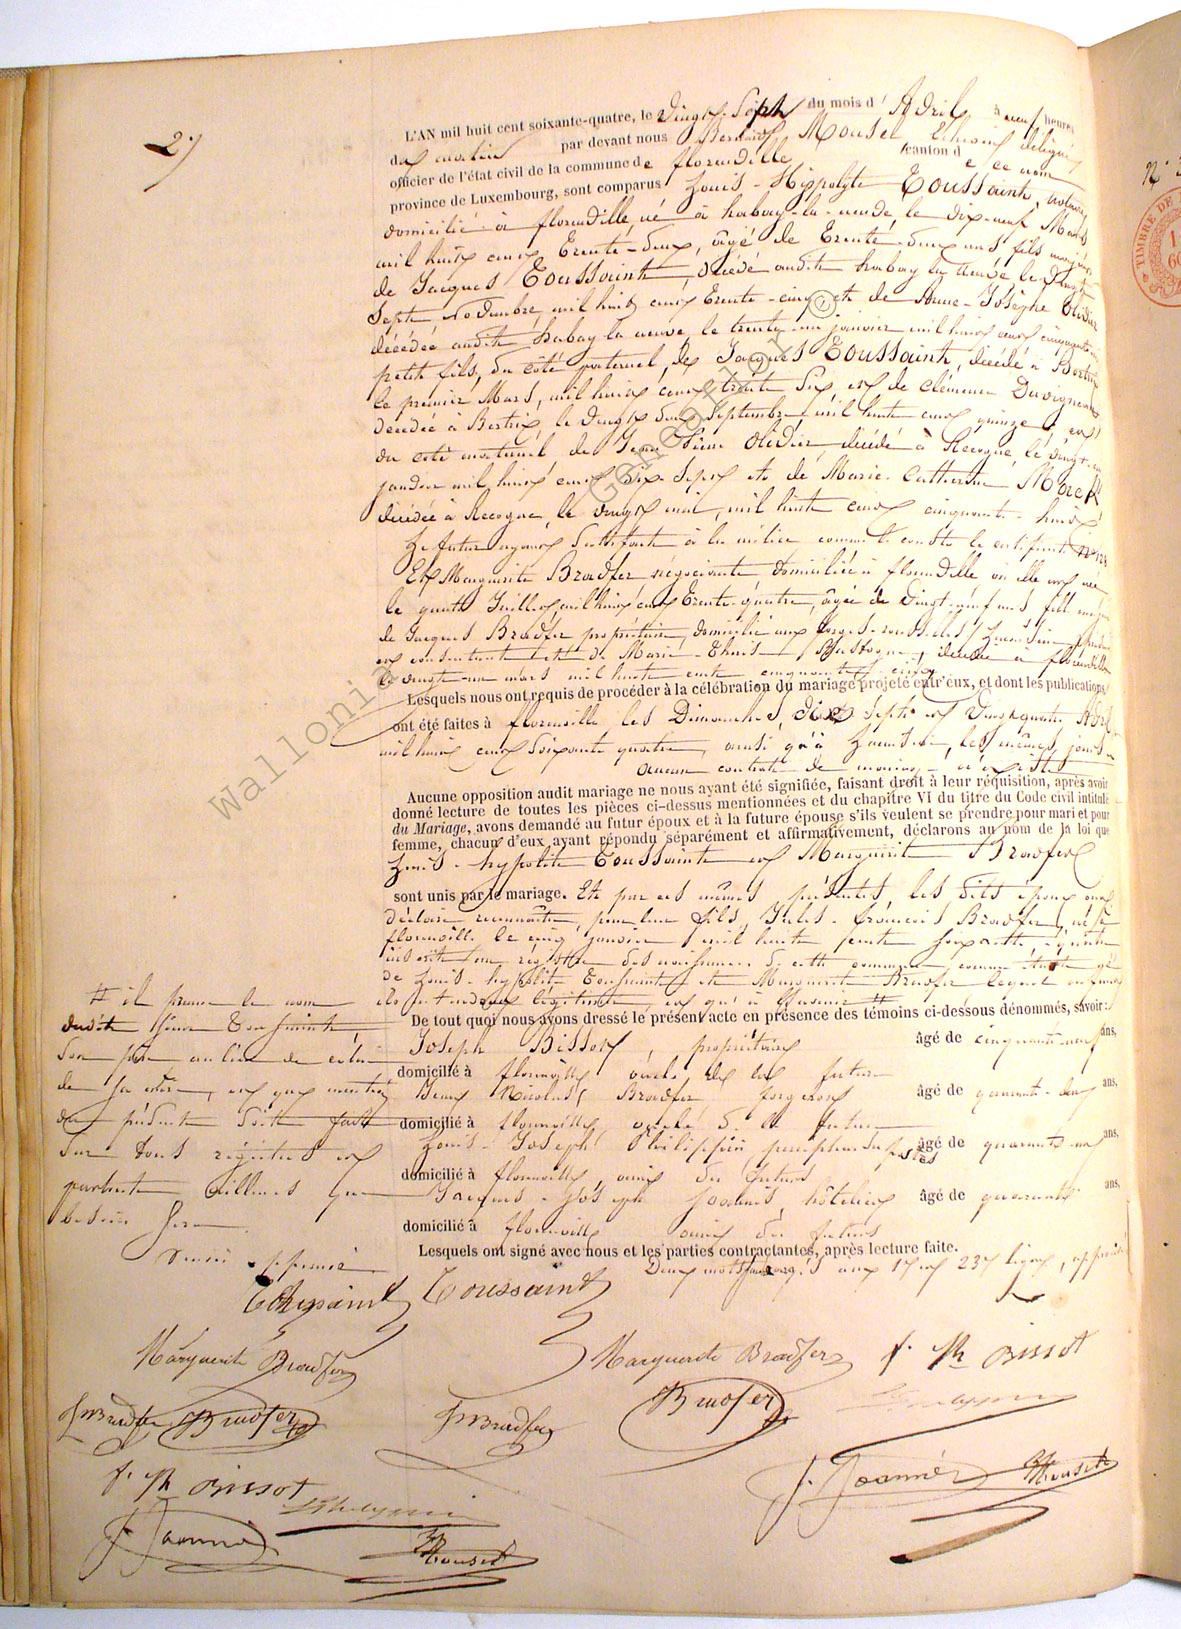 2.)
L'AN mil huit cent soixante-quatre, le vingt-sept du mois d'Avril à neuf heures
du matin par devant nous Bernard Mouset Echevin délégué
officier de l'état civil de la commune de florenville canton de ce nom
province de Luxembourg, sont comparus Louis-Hippolyte Toussaint, notaire,
domicilié à florenville, né à habay-la-neuve, le dix-neuf Mars
mil huit cent Trente-deux, âgé de Trente-deux ans fils majeur
de Jacques Toussaint, décédé audit habay la neuve le vingt
sept novembre, mil huit cent Trente-cinq et de Anne-Josèphe Olivier
décédée audit habay la neuve le trente un janvier mil huit cent cinquante
petit fils, du côté paternel, de Jacques Toussaint, décédé à Bertrix
le premier Mars, mil huit cent trente six, et de Clémence Duvigneau
décédée à Bertrix le vingt deux Septembre mil huit cent quinze, et
du coté maternel de Jean Pierre Olivier, décédé à Recogne, le vingt
janvier mil huit cent dix-sept et de Marie-Catherine Morck
décédée à Recogne, le vingt mai, mil huit cent cinquante-huit
Le futur ayant satisfait à la milice comme le conste le certificat n°
Et Marguerite Bradfer négociante, domiciliée à florenville où elle est née
le quatre Juillet mil huit cent Trente-quatre, âgée de vingt-neuf ans fille majeure
de Jacques Bradfer propriétaire, domicilié aux forges-roussel
et consentant et de Marie-Thérèse décédée à florenville
le vingt-un mars mil huit cent cinquante cinq
Lesquels nous ont requis de procéder à la célébration du mariage projeté entr'eux, et dont les publications
ont été faites à florenville les Dimanches, dix sept et vingt quatre Avril
mil huit cent soixante quatre, ainsi qu'à les mêmes jours
aucun contrat de mariage n'existe
Aucune opposition audit mariage ne nous ayant été signifiée, faisant droit à leur réquisition, après avoir
donné lecture de toutes les pièces ci-dessus mentionnées et du chapitre VI du titre du Code civil intitulé
du Mariage, avons demandé au futur époux et à la future épouse s'ils veulent se prendre pour mari et pour
femme, chacun d'eux ayant répondu séparément et affirmativement, déclarons au nom de la loi que
Louis-hypolite Toussaint et Marguerite Bradfer
sont unis par le mariage. Et par ces mêmes présentes, les dits époux ont
déclaré reconnaître, pour leur fils, Jules-françois Bradfer, né à
florenville le cinq janvier mil huit cent soixante quatre
inscrit au registre des naissances de cette commune comme
de Louis-hypolite Toussaint et Marguerite Bradfer lequel enfant
ils entendent légitimer, et qu'à l'avenir #
De tout quoi nous avons dressé le présent acte en présence des témoins ci-dessous dénommés, savoir :
Joseph Bissot propriétaire âgé de cinquante-neuf ans,
domicilié à florenville, oncle de la future
Jean Nicolas Bradfer forgeron âgé de quarante-deux ans,
domicilié à florenville, oncle de la future
Louis-Joseph Philippin percepteur des postes âgé de quarante ans,
domicilié à florenville, ami des futurs
Jacques-Joseph Joannès, hôtelier âgé de quarante ans,
domicilié à florenville ami des futurs
Lesquels ont signé avec nous et les parties contractantes, après lecture faite.
Deux mots surchargés aux 17e et 23e lignes, approuvés
# il prenne le nom
dudit Sieur Toussaint,
son père au lieu de celui
de sa mère, et que mention
du présent soit faite
sur tous registres et
partout ailleurs que
besoin sera.
Renvoi approuvé
Toussaint Toussaint
Marguerite Bradfer Marguerite Bradfer J. Bissot
JNBradfer Bradfer JNBradfer Bradfer
J. Bissot
J. Joannès Mouset
J. Joannès Mouset
Wallonia Geneaflor ©
TIMBRE DE
N°